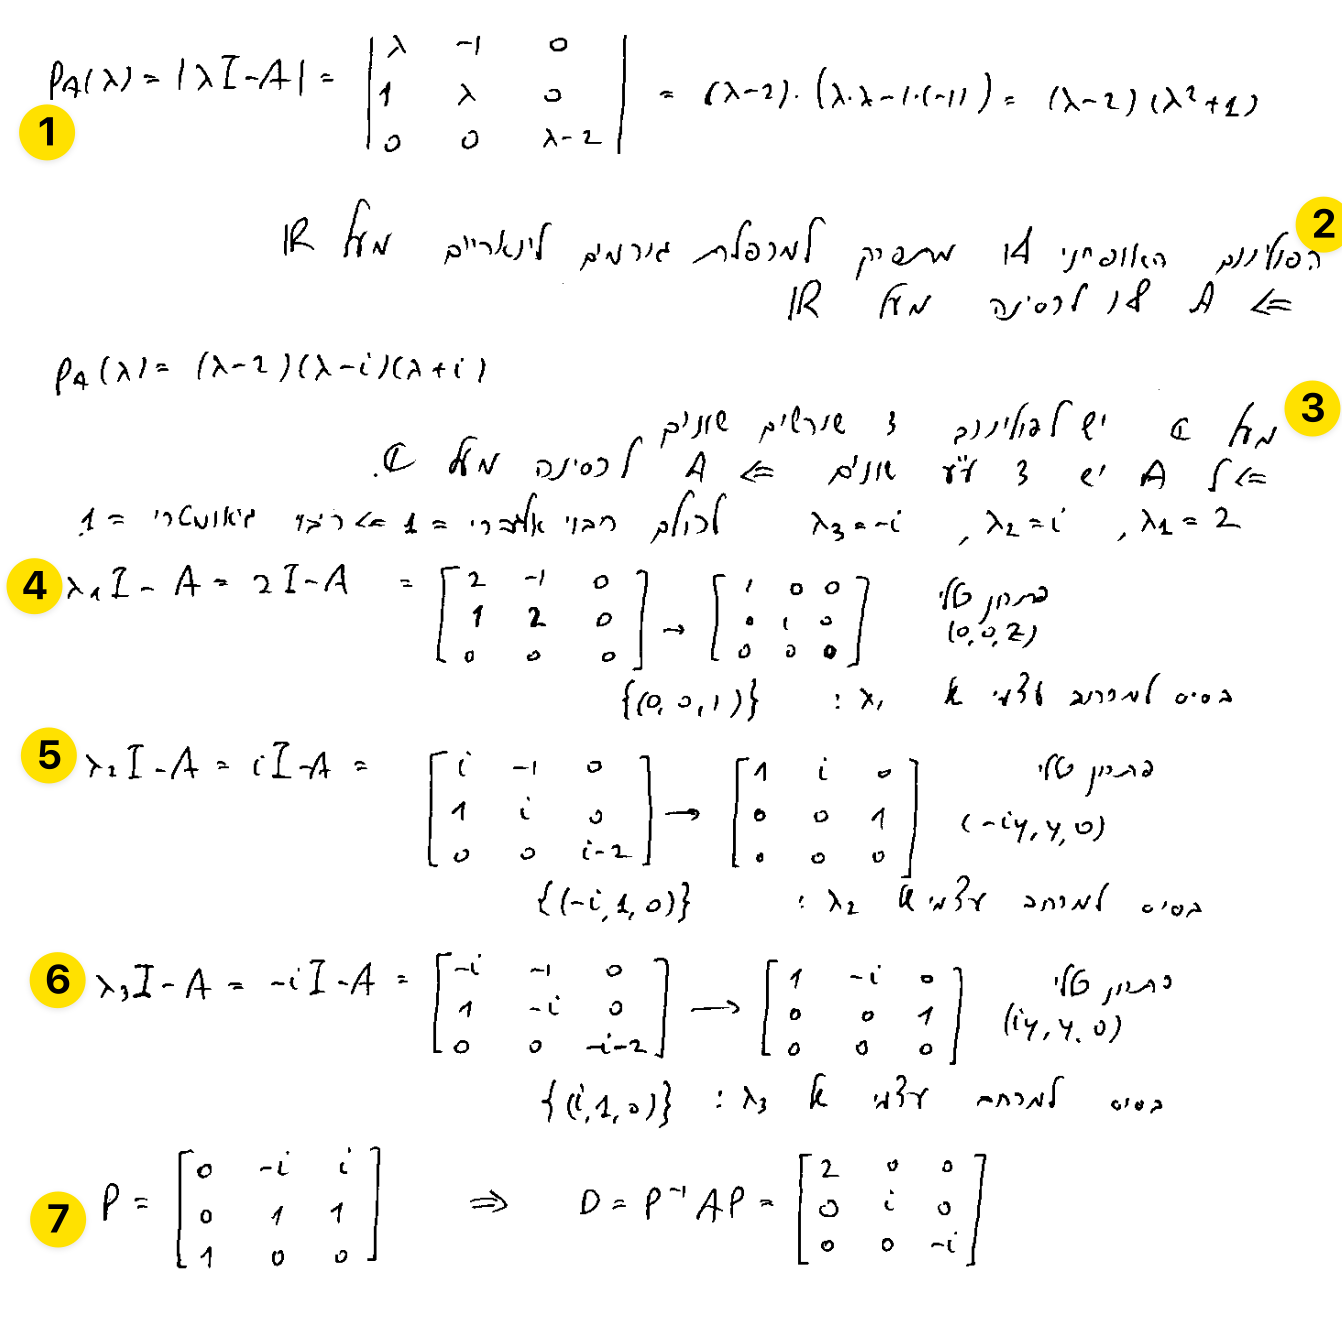 1 P_A(λ) = |λI-A| = | λ -1 0 ; 1 λ 0 ; 0 0 λ-2 | = (λ-2)·(λ·λ-1·(-1)) = (λ-2)(λ²+1)
2 הפולינום האופייני לא מתפרק למכפלת גורמים לינאריים מעל ℝ
⇐ A לא לכסינה מעל ℝ
P_A(λ) = (λ-2)(λ-i)(λ+i)
3 מעל ℂ יש לפולינום 3 שורשים שונים
⇐ ל A יש 3 ע"ע שונים ⇐ A לכסינה מעל ℂ.
λ₁ = 2, λ₂ = i, λ₃ = -i לכולם ריבוי אלגברי = 1 ⇐ ריבוי גיאומטרי = 1.
4 λ₁I - A = 2I - A = [ 2 -1 0 ; 1 2 0 ; 0 0 0 ] → [ 1 0 0 ; 0 1 0 ; 0 0 0 ] פתרון כללי (0,0,z)
בסיס למרחב עצמי של λ₁ : {(0,0,1)}
5 λ₂I - A = iI - A = [ i -1 0 ; 1 i 0 ; 0 0 i-2 ] → [ 1 i 0 ; 0 0 1 ; 0 0 0 ] פתרון כללי (-iy, y, 0)
בסיס למרחב עצמי של λ₂ : {(-i,1,0)}
6 λ₃I - A = -iI - A = [ -i -1 0 ; 1 -i 0 ; 0 0 -i-2 ] → [ 1 -i 0 ; 0 0 1 ; 0 0 0 ] פתרון כללי (iy, y, 0)
בסיס למרחב עצמי של λ₃ : {(i,1,0)}
7 P = [ 0 -i i ; 0 1 1 ; 1 0 0 ] ⇒ D = P⁻¹AP = [ 2 0 0 ; 0 i 0 ; 0 0 -i ]